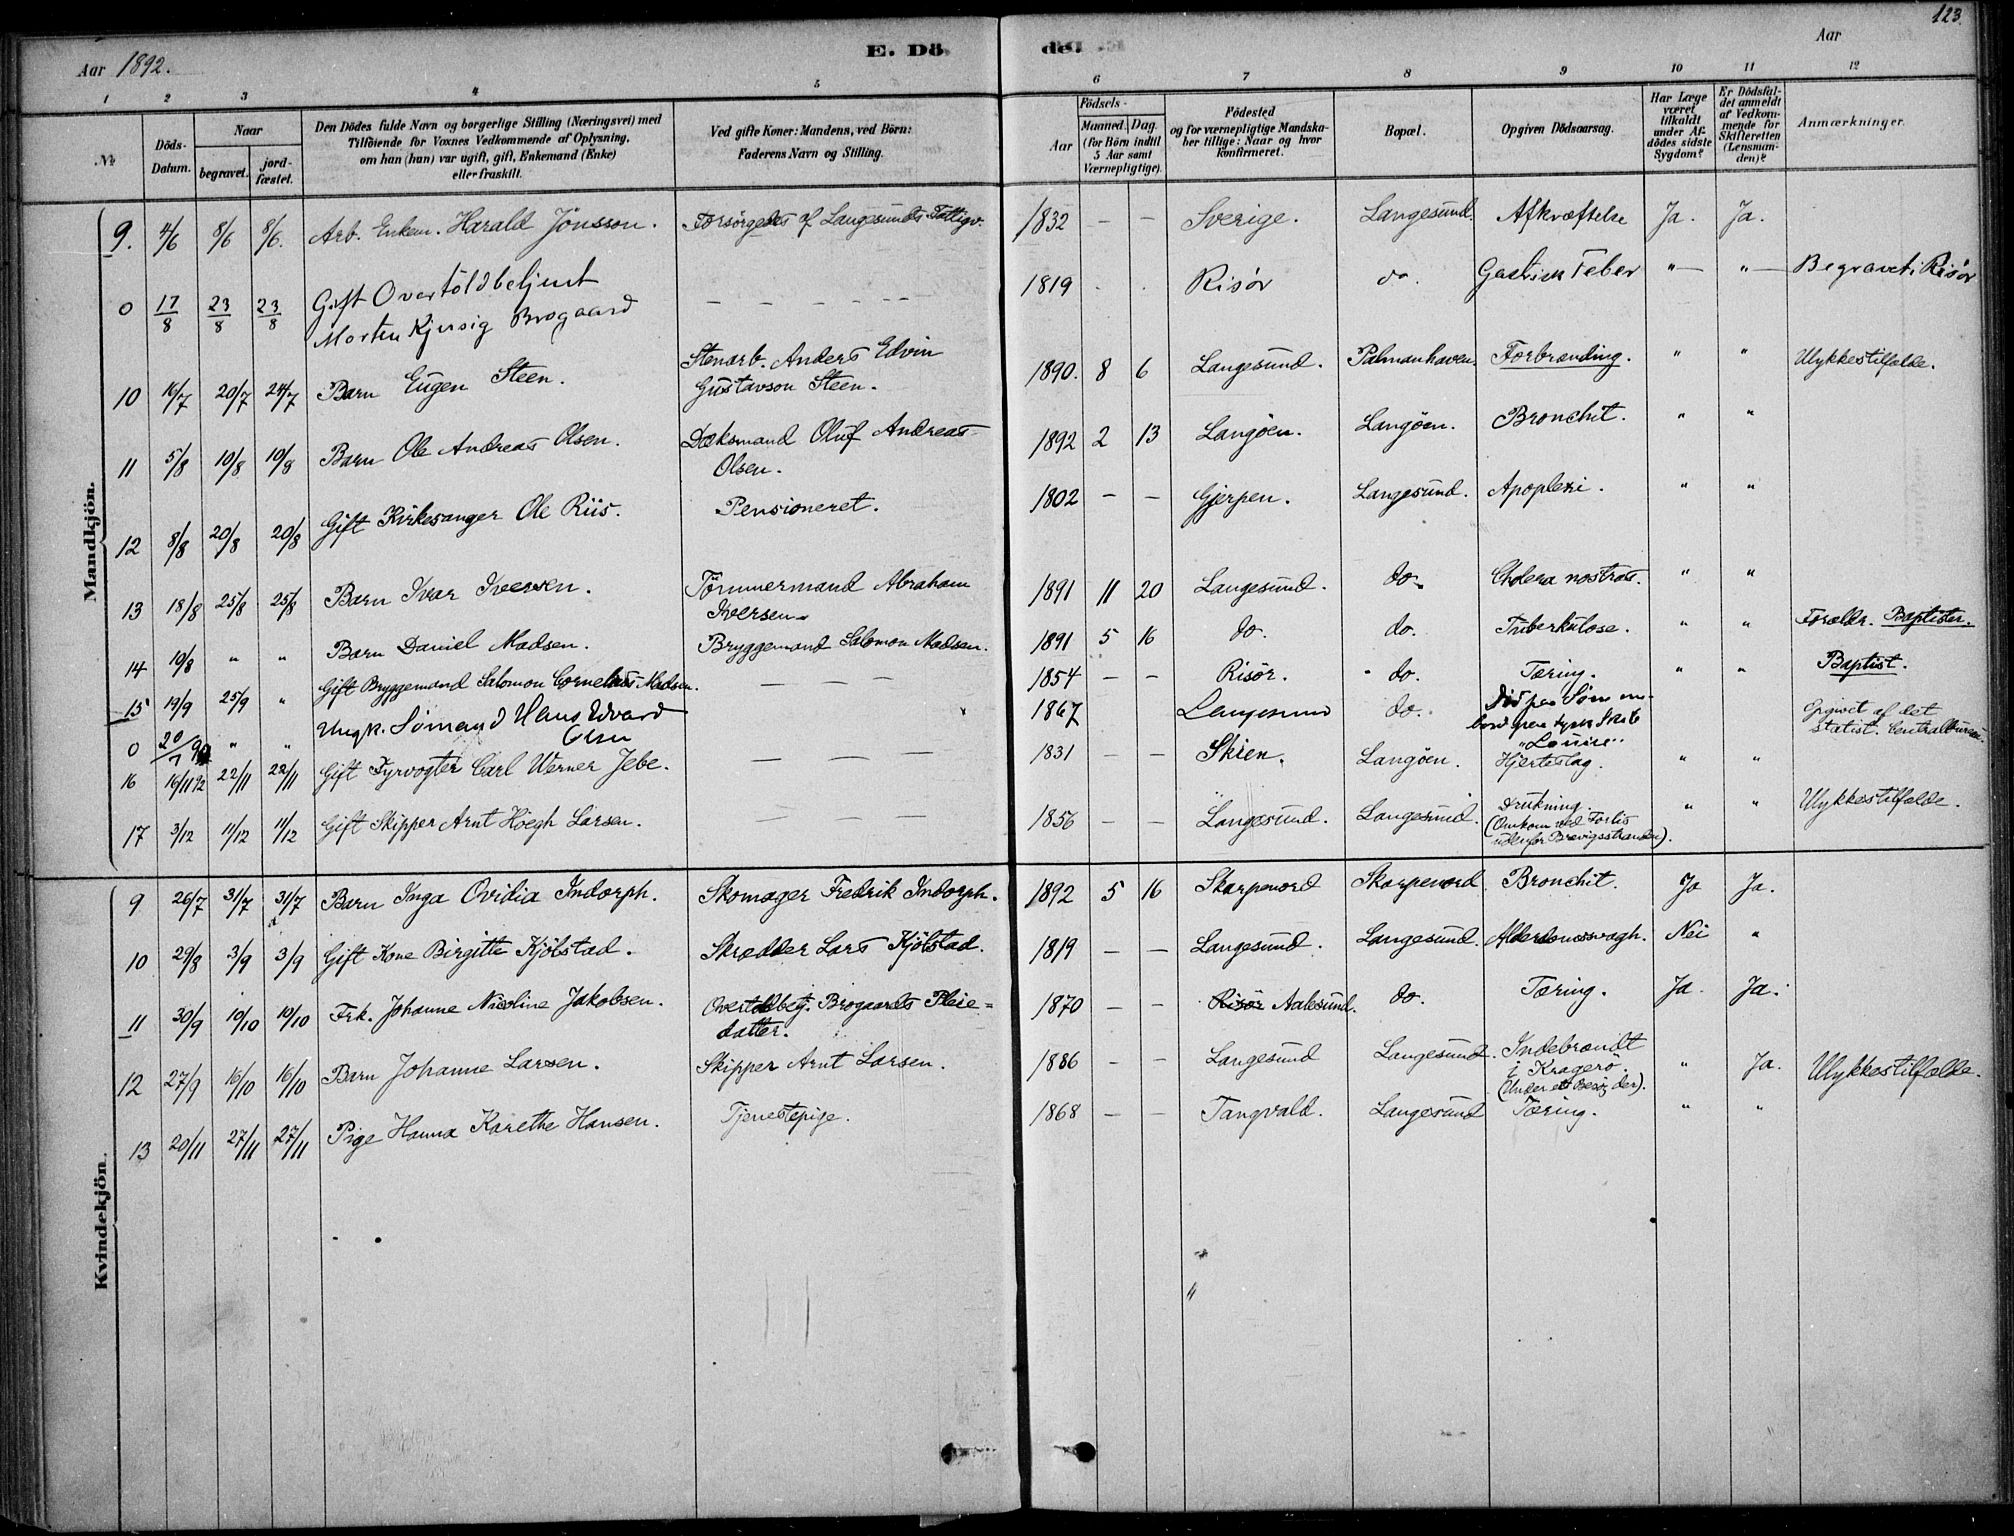 123.
Aar 1892.
E. Döde.
Aar
1 2 3 4 5 6 7 8 9 10 11 12
№
Döds-Datum.
Naar
begravet.
jordfæstet.
Den Dödes fulde Navn og borgerlige Stilling (Næringsvei) med
Tilföiende for Voxnes Vedkommende af Oplysning.
om han (hun) var ugift, gift, Enkemand (Enke)
eller fraskilt.
Ved gifte Koner: Mandens, ved Börn:
Faderens Navn og Stilling.
Födsels-
Aar
Maaned. Dag.
(for Börn indtil
5 Aar samt
Værnepligtige).
Födested
og for værnepligtige Mandskaber tillige: Naar og hvor
konfirmeret.
Bopæl.
Opgiven Dödsaarsag.
Har Læge
været
tilkaldt
under Afdödes sidste
Sygdom?
Er Dödsfaldet anmeldt
af Vedkommende for
Skifteretten
(Lensmanden)?
Anmærkninger.
Mandkjön.
9. 4/6 8/6 8/6. Arb. Enkem. Harald Jönsson. Forsörgedes af Langesunds Fattigv. 1832 — — Sverige. Langesund. Afkræftelse Ja. Ja.
0 17/8 23/8 23/8 Gift Overtoldbetjent
Morten Kjersig Brogaard
1819 Risör do Gastrisk Feber " " Begravet i Risör
10 16/7 20/7 24/7 Barn Eugen Steen. Stenarb. Anders Edvin
Gustavson Steen.
1890. 8 6 Langesund. Palmanhaven. Forbrænding. " " Ulykkestilfælde.
11 5/8 10/8 10/8 Barn Ole Andreas Olsen. Dæksmand Oluf Andreas
Olsen.
1892 2 13 Langöen. Langöen. Bronchit. " "
12 8/8 20/8 20/8 Gift Kirkesanger Ole Riis. Pensioneret. 1802 — — Gjerpen. Langesund. Apoplexi. " "
13 18/8 25/8 25/8 Barn Ivar Iversen. Tömmermand Abraham
Iversen.
1891 11 20 Langesund. do. Cholera nostras. " "
14 10/8 " " Barn Daniel Madsen. Bryggemand Salomon Madsen. 1891 5 16 do. do. Tuberkulose. " " Forældr. Baptister.
15 19/9 25/9 " Gift Bryggemand Salomon Cornelius Madsen. — — — 1854 — — Risör. do. Tæring. " " Baptist.
0 20/7 90 " " Ungk. Sömand Hans Edvard
Olsen
1867 Langesund do. Död paa Söen ombord paa tysk Skib
"Louise"
Opgivet af det
statist. Centralbureau.
16 16/11 92 22/11 22/11 Gift Fyrvogter Carl Werner Jebe. — — — 1831 Skien. Langöen. Hjerteslag. " "
17 3/12 11/12 11/12 Gift Skipper Arnt Höegh Larsen. — — — 1856 — — Langesund. Langesund. Drukning.
(Omkom ved Forlis
udenfor Brevigsstranden).
" " Ulykkestilfælde.
Kvindekjön.
9 26/7 31/7 31/7 Barn Inga Ovidia Indorph. Skomager Fredrik Indorph. 1892 5 16 Skarpenord Skarpenord Bronchit. Ja Ja.
10 29/8 3/9 3/9 Gift Kone Birgitte Kjölstad. Skrædder Lars Kjölstad. 1819 — — Langesund. Langesund. Alderdomssvagh. Nei "
11 30/9 10/10 10/10 Frk. Johanne Nicoline Jakobsen. Overtoldbetj. Brogaards Pleiedatter.
1870 — — Risör Aalesund. do. Tæring. Ja. Ja.
12 27/9 16/10 16/10 Barn Johanne Larsen. Skipper Arnt Larsen. 1886 — — Langesund Langesund. Indebrændt
i Kragerö.
(Under et Besög der).
" Ja. Ulykkestilfælde.
13 20/11 27/11 27/11 Pige Hanna Karethe Hansen. Tjenestepige. 1868 — — Tangvald. Langesund Tæring. " "